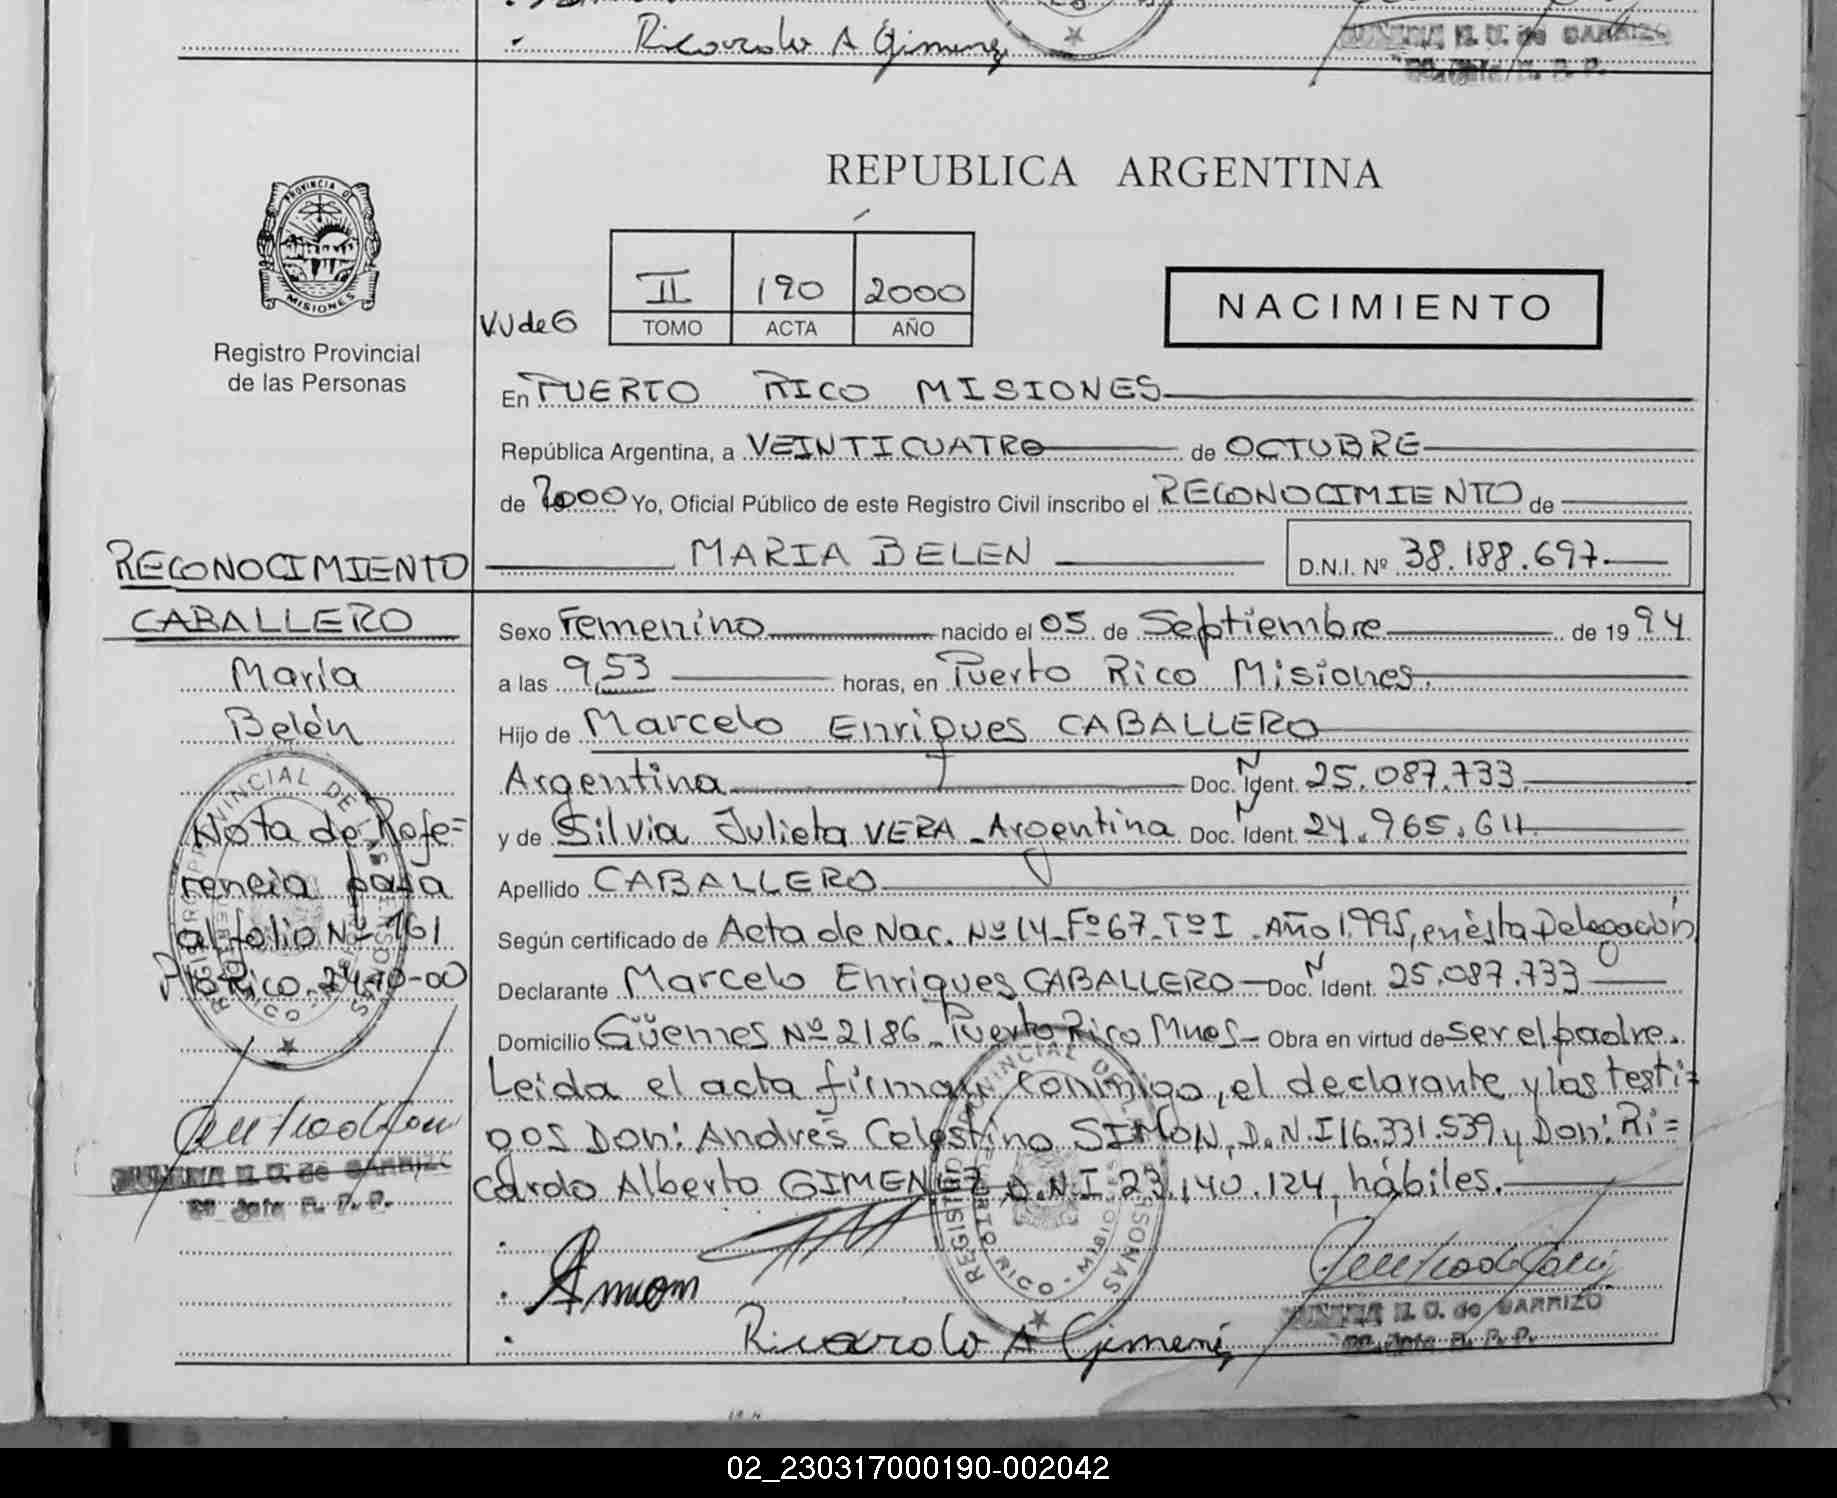 Ricardo A Gimenez
REPUBLICA ARGENTINA
PROVINCIA DE
MISIONES
Registro Provincial
de las Personas
VU de G
II 190 2000
TOMO ACTA AÑO
NACIMIENTO
En PUERTO RICO MISIONES
República Argentina, a VEINTICUATRO de OCTUBRE
de 2000 Yo, Oficial Público de este Registro Civil inscribo el RECONOCIMIENTO de
MARIA BELEN D.N.I. Nº 38.188.697.
RECONOCIMIENTO
CABALLERO
María
Belén
Nota de Refe=
rencia para
al folio Nº 161
Pto Rico. 24-10-00
Sexo Femenino nacido el 05 de Septiembre de 1994
a las 9,53 horas, en Puerto Rico Misiones.
Hijo de Marcelo Enriques CABALLERO
Argentina Doc. N Ident. 25.087.733.
y de Silvia Julieta VERA - Argentina Doc. N Ident. 24.965.611.
Apellido CABALLERO
Según certificado de Acta de Nac. Nº 14 - Fº 67 - Tº I - Año 1.995, en ésta Delegación
Declarante Marcelo Enriques CABALLERO - Doc. N Ident. 25.087.733
Domicilio Güemes Nº 2186 - Puerto Rico Mnes - Obra en virtud de ser el padre.
Leida el acta firman conmigo, el declarante y los testi=
gos Don: Andrés Celestino SIMON, D.N.I 16.331.539 y Don: Ri=
cardo Alberto GIMENEZ, D.N.I 23.140.124, hábiles.
Simon
Ricardo A Gimenez
02_230317000190-002042